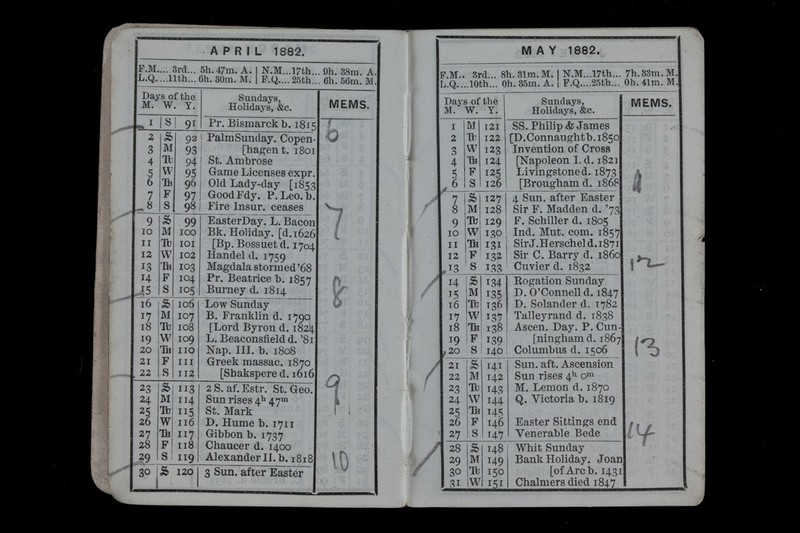 APRIL 1882.
F.M.... 3rd... 5h. 47m. A. | N.M...17th... 9h. 38m. A.
L.Q....11th... 6h. 30m. M. | F.Q....25th... 6h. 56m. M.
Days of the M. W. Y. | Sundays, Holidays, &c. | MEMS.
1 S 91 Pr. Bismarck b. 1815
2 S 92 Palm Sunday. Copen- 6
3 M 93 [hagen t. 1801
4 Tu 94 St. Ambrose
5 W 95 Game Licenses expr.
6 Th 96 Old Lady-day [1853
7 F 97 Good Fdy. P. Leo. b.
8 S 98 Fire Insur. ceases
9 S 99 Easter Day. L. Bacon 7
10 M 100 Bk. Holiday. [d. 1626
11 Tu 101 [Bp. Bossuet d. 1704
12 W 102 Handel d. 1759
13 Th 103 Magdala stormed '68
14 F 104 Pr. Beatrice b. 1857
15 S 105 Burney d. 1814 8
16 S 106 Low Sunday
17 M 107 B. Franklin d. 1790
18 Tu 108 [Lord Byron d. 1824
19 W 109 L. Beaconsfield d. '81
20 Th 110 Nap. III. b. 1808
21 F 111 Greek massac. 1870
22 S 112 [Shakspere d. 1616
23 S 113 2 S. af. Estr. St. Geo. 9
24 M 114 Sun rises 4h 47m
25 Tu 115 St. Mark
26 W 116 D. Hume b. 1711
27 Th 117 Gibbon b. 1737
28 F 118 Chaucer d. 1400
29 S 119 Alexander II. b. 1818 10
30 S 120 3 Sun. after Easter
MAY 1882.
F.M.. 3rd... 8h. 31m. M. | N.M...17th... 7h. 33m. M.
L.Q....10th... 0h. 35m. A. | F.Q....25th... 0h. 41m. M.
Days of the M. W. Y. | Sundays, Holidays, &c. | MEMS.
1 M 121 SS. Philip & James
2 Tu 122 [D. Connaught b. 1850
3 W 123 Invention of Cross
4 Th 124 [Napoleon I. d. 1821
5 F 125 Livingstone d. 1873
6 S 126 [Brougham d. 1868
7 S 127 4 Sun. after Easter
8 M 128 Sir F. Madden d. '73
9 Tu 129 F. Schiller d. 1805
10 W 130 Ind. Mut. com. 1857
11 Th 131 Sir J. Herschel d. 1871
12 F 132 Sir C. Barry d. 1860
13 S 133 Cuvier d. 1832 12
14 S 134 Rogation Sunday
15 M 135 D. O'Connell d. 1847
16 Tu 136 D. Solander d. 1782
17 W 137 Talleyrand d. 1838
18 Th 138 Ascen. Day. P. Cun-
19 F 139 [ningham d. 1867
20 S 140 Columbus d. 1506 13
21 S 141 Sun. aft. Ascension
22 M 142 Sun rises 4h 0m
23 Tu 143 M. Lemon d. 1870
24 W 144 Q. Victoria b. 1819
25 Th 145
26 F 146 Easter Sittings end
27 S 147 Venerable Bede 14
28 S 148 Whit Sunday
29 M 149 Bank Holiday. Joan
30 Tu 150 [of Arc b. 1431
31 W 151 Chalmers died 1847